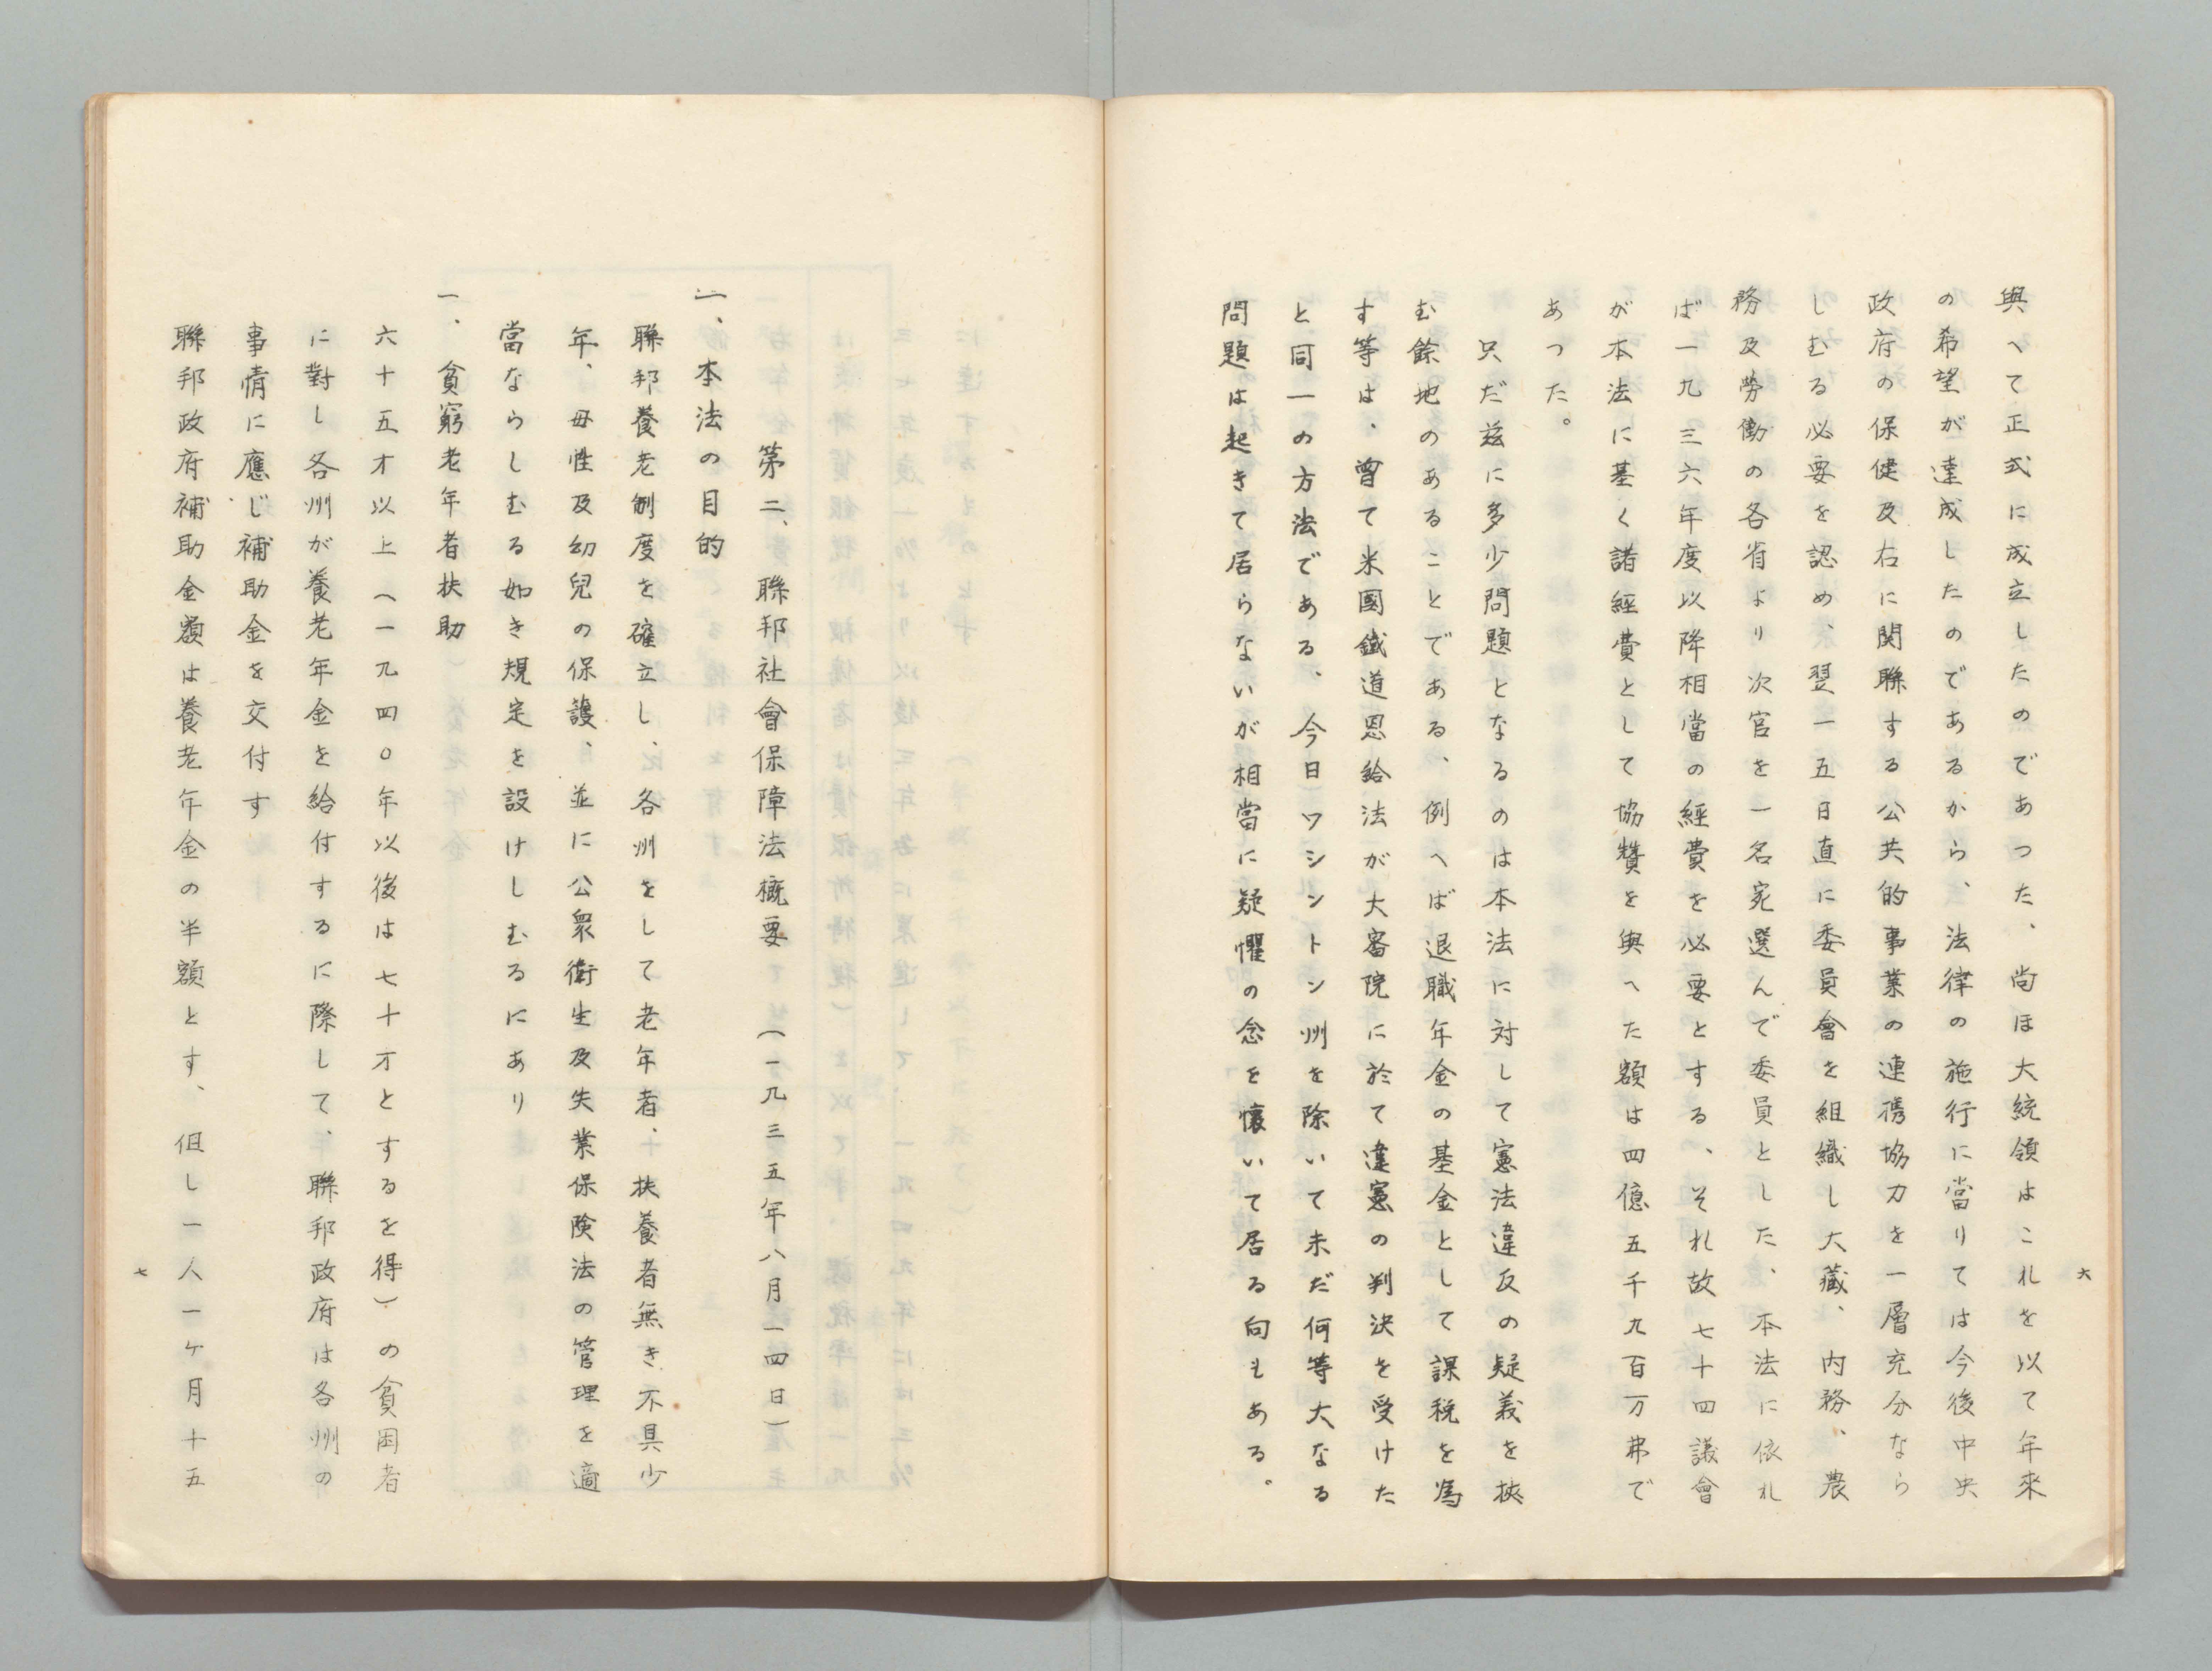 六
與へて正式に成立したのであつた、尚ほ大統領はこれを以て年來
の希望が達成したのであるから、法律の施行に當りては今後中央
政府の保健及右に関聯する公共的事業の連携協力を一層充分なら
しむる必要を認め、翌一五日直に委員會を組織し大藏、内務、農
務及勞働の各省より次官を一名宛選んで委員とした、本法に依れ
ば一九三六年度以降相當の經費を必要とする、それ故七十四議會
が本法に基く諸經費として協贊を與へた額は四億五千九百万弗で
あつた。
只だ茲に多少問題となるのは本法に対して憲法違反の疑義を挾
む餘地のあることである、例へば退職年金の基金として課税を爲
す等は、曾て米國鐵道恩給法が大審院に於て違憲の判決を受けた
と同一の方法である、今日ワシントン州を除いて未だ何等大なる
問題は起きて居らないが相當に疑懼の念を懷いて居る向もある。
第二、聯邦社會保障法概要（一九三五年八月一四日）
一、本法の目的
聯邦養老制度を確立し、各州をして老年者、扶養者無き不具少
年、母性及幼兒の保護、並に公衆衛生及失業保険法の管理を適
當ならしむる如き規定を設けしむるにあり
一、貧窮老年者扶助
六十五才以上（一九四〇年以後は七十才とするを得）の貧困者
に對し各州が養老年金を給付するに際して、聯邦政府は各州の
事情に應じ補助金を交付す
聯邦政府補助金額は養老年金の半額とす、但し一人一ケ月十五
七